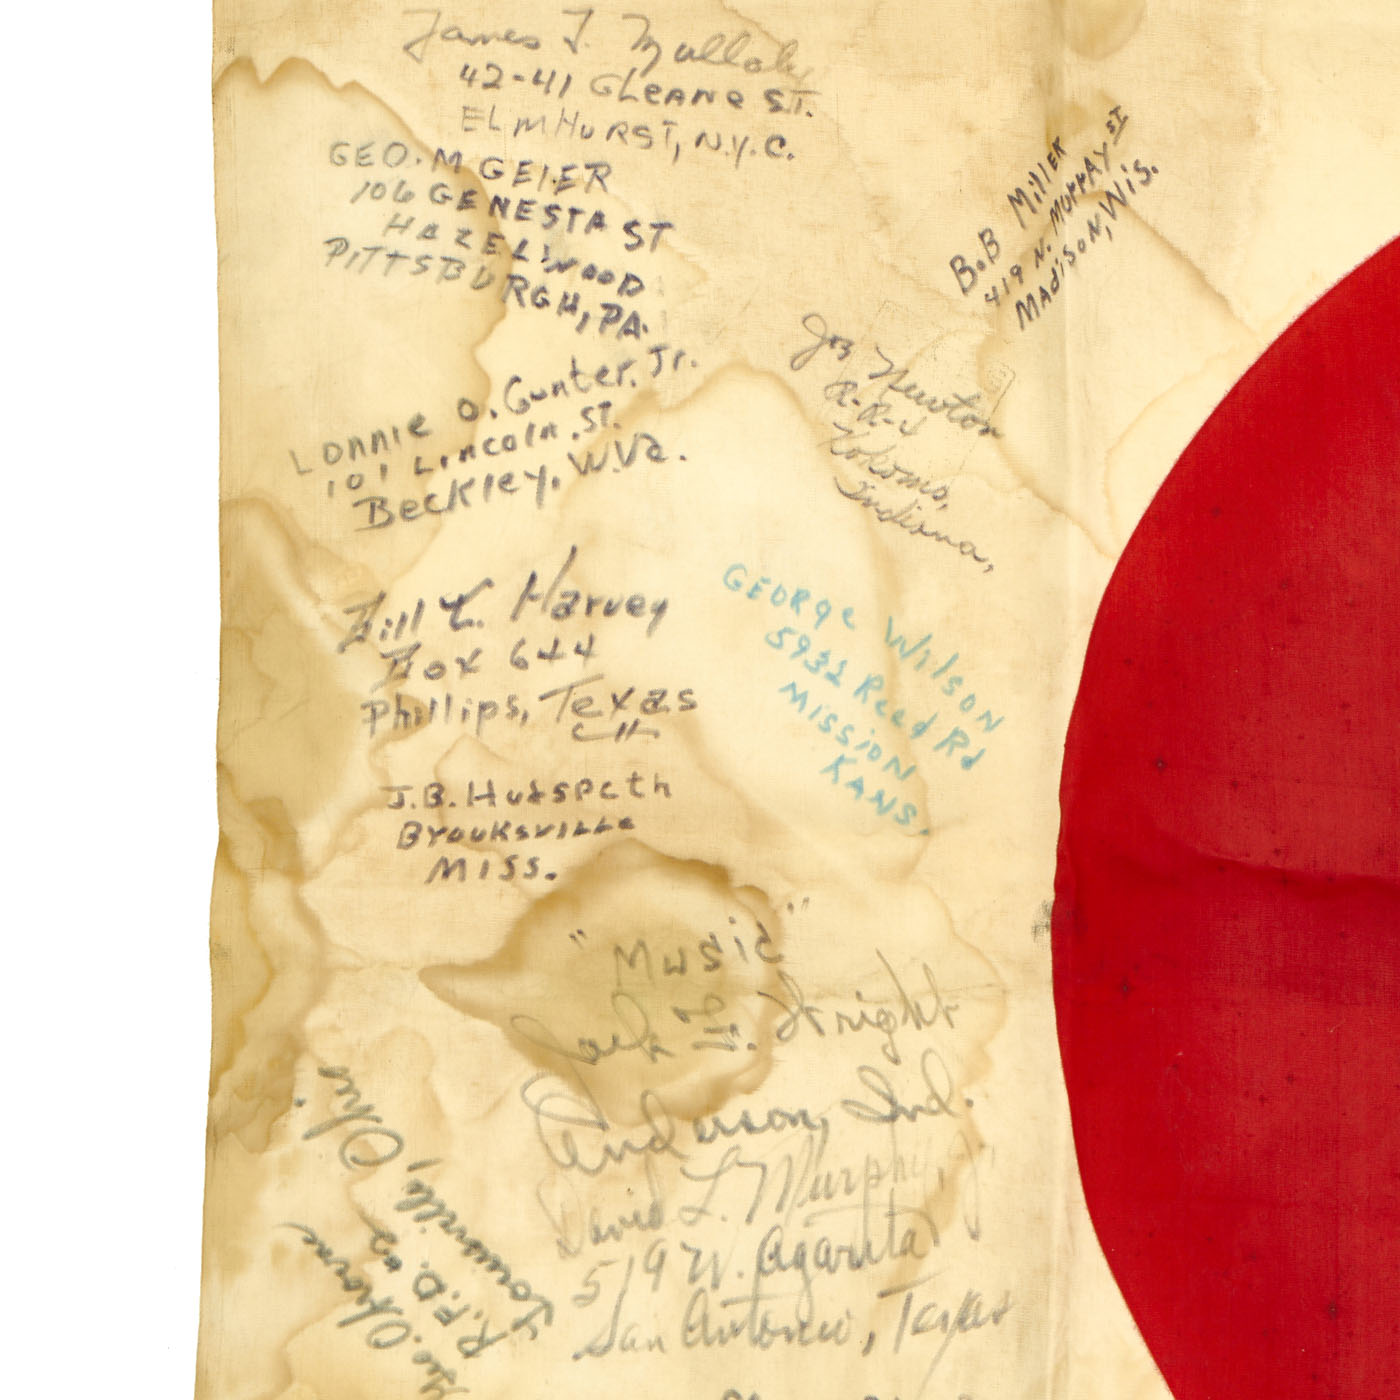 James J.
42-41 GLeANe ST.
ELMHuRST, N.Y.C.
GEO. M GEIER
106 GENESTA ST
HAZELWOOD
PITTSBURGH, PA.
LONNIE O. Gunter, Jr.
101 LIncoln ST.
Beckley, W.Va.
Bill L. Harvey
Box 644
Phillips, Texas
J.B. Hudspeth
Brooksville
MISS.
"Music"
Jack F. Wright
Anderson, Ind.
David L. Murphy, Jr.
519 W. Agarita
San Antonio, Texas
Geo.
R.F.D. #2
Ohio
BoB Miller
419 N. MurrAY ST
MAdisoN, Wis.
Newton
R-R-4
Kokomo,
Indiana,
GEORge Wilson
5932 Reed Rd
MissioN
KANS.